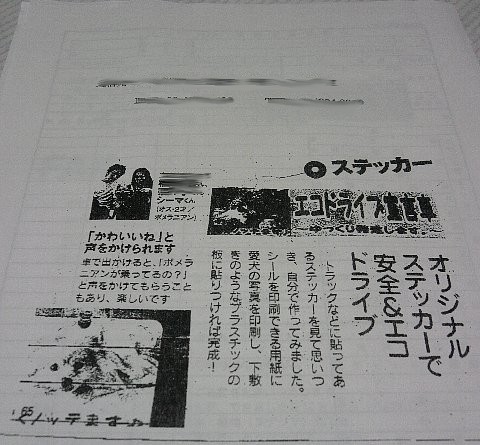 ステッカー
エコドライブ宣言車
オリジナル
ステッカーで
安全&エコ
ドライブ
トラックなどに貼ってあ
るステッカーを見て思いつ
き、自分で作ってみました。
シールを印刷できる用紙に
愛犬の写真を印刷し、下敷
きのようなプラスチックの
板に貼りつければ完成!
シーマくん
(オス・2才/
ポメラニアン)
「かわいいね」と
声をかけられます
車で出かけると、「ポメラ
ニアンが乗ってるの?」
と声をかけてもらうこと
もあり、楽しいです
65